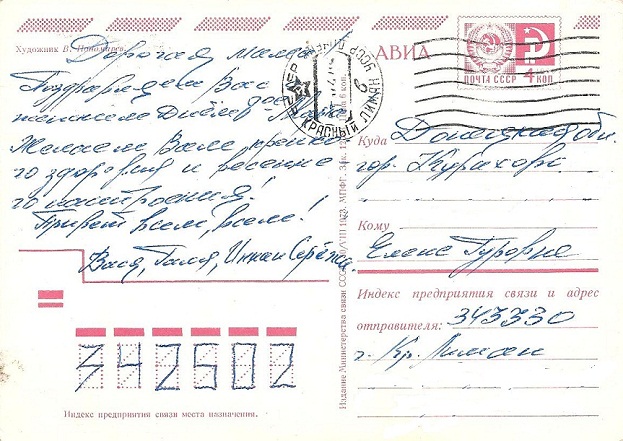 Художник В. Пономарев
АВИА
ПОЧТА СССР
4 КОП.
Дорогая мама!
Поздравляем Вас с
женским Днём 8 Марта
Желаем Вам крепко-
го здоровья и весенне-
го настроения!
Привет всем, всем!
Вася, Галя, Инна и Серёжа.
КРАСНЫЙ ЛИМАН
Куда Донецкая об.
гор. Курахово
Кому
Елене Гуровне
Индекс предприятия связи и адрес
отправителя: 343330
г. Кр. Лиман
342502
Индекс предприятия связи места назначения.
Издание Министерства связи СССР